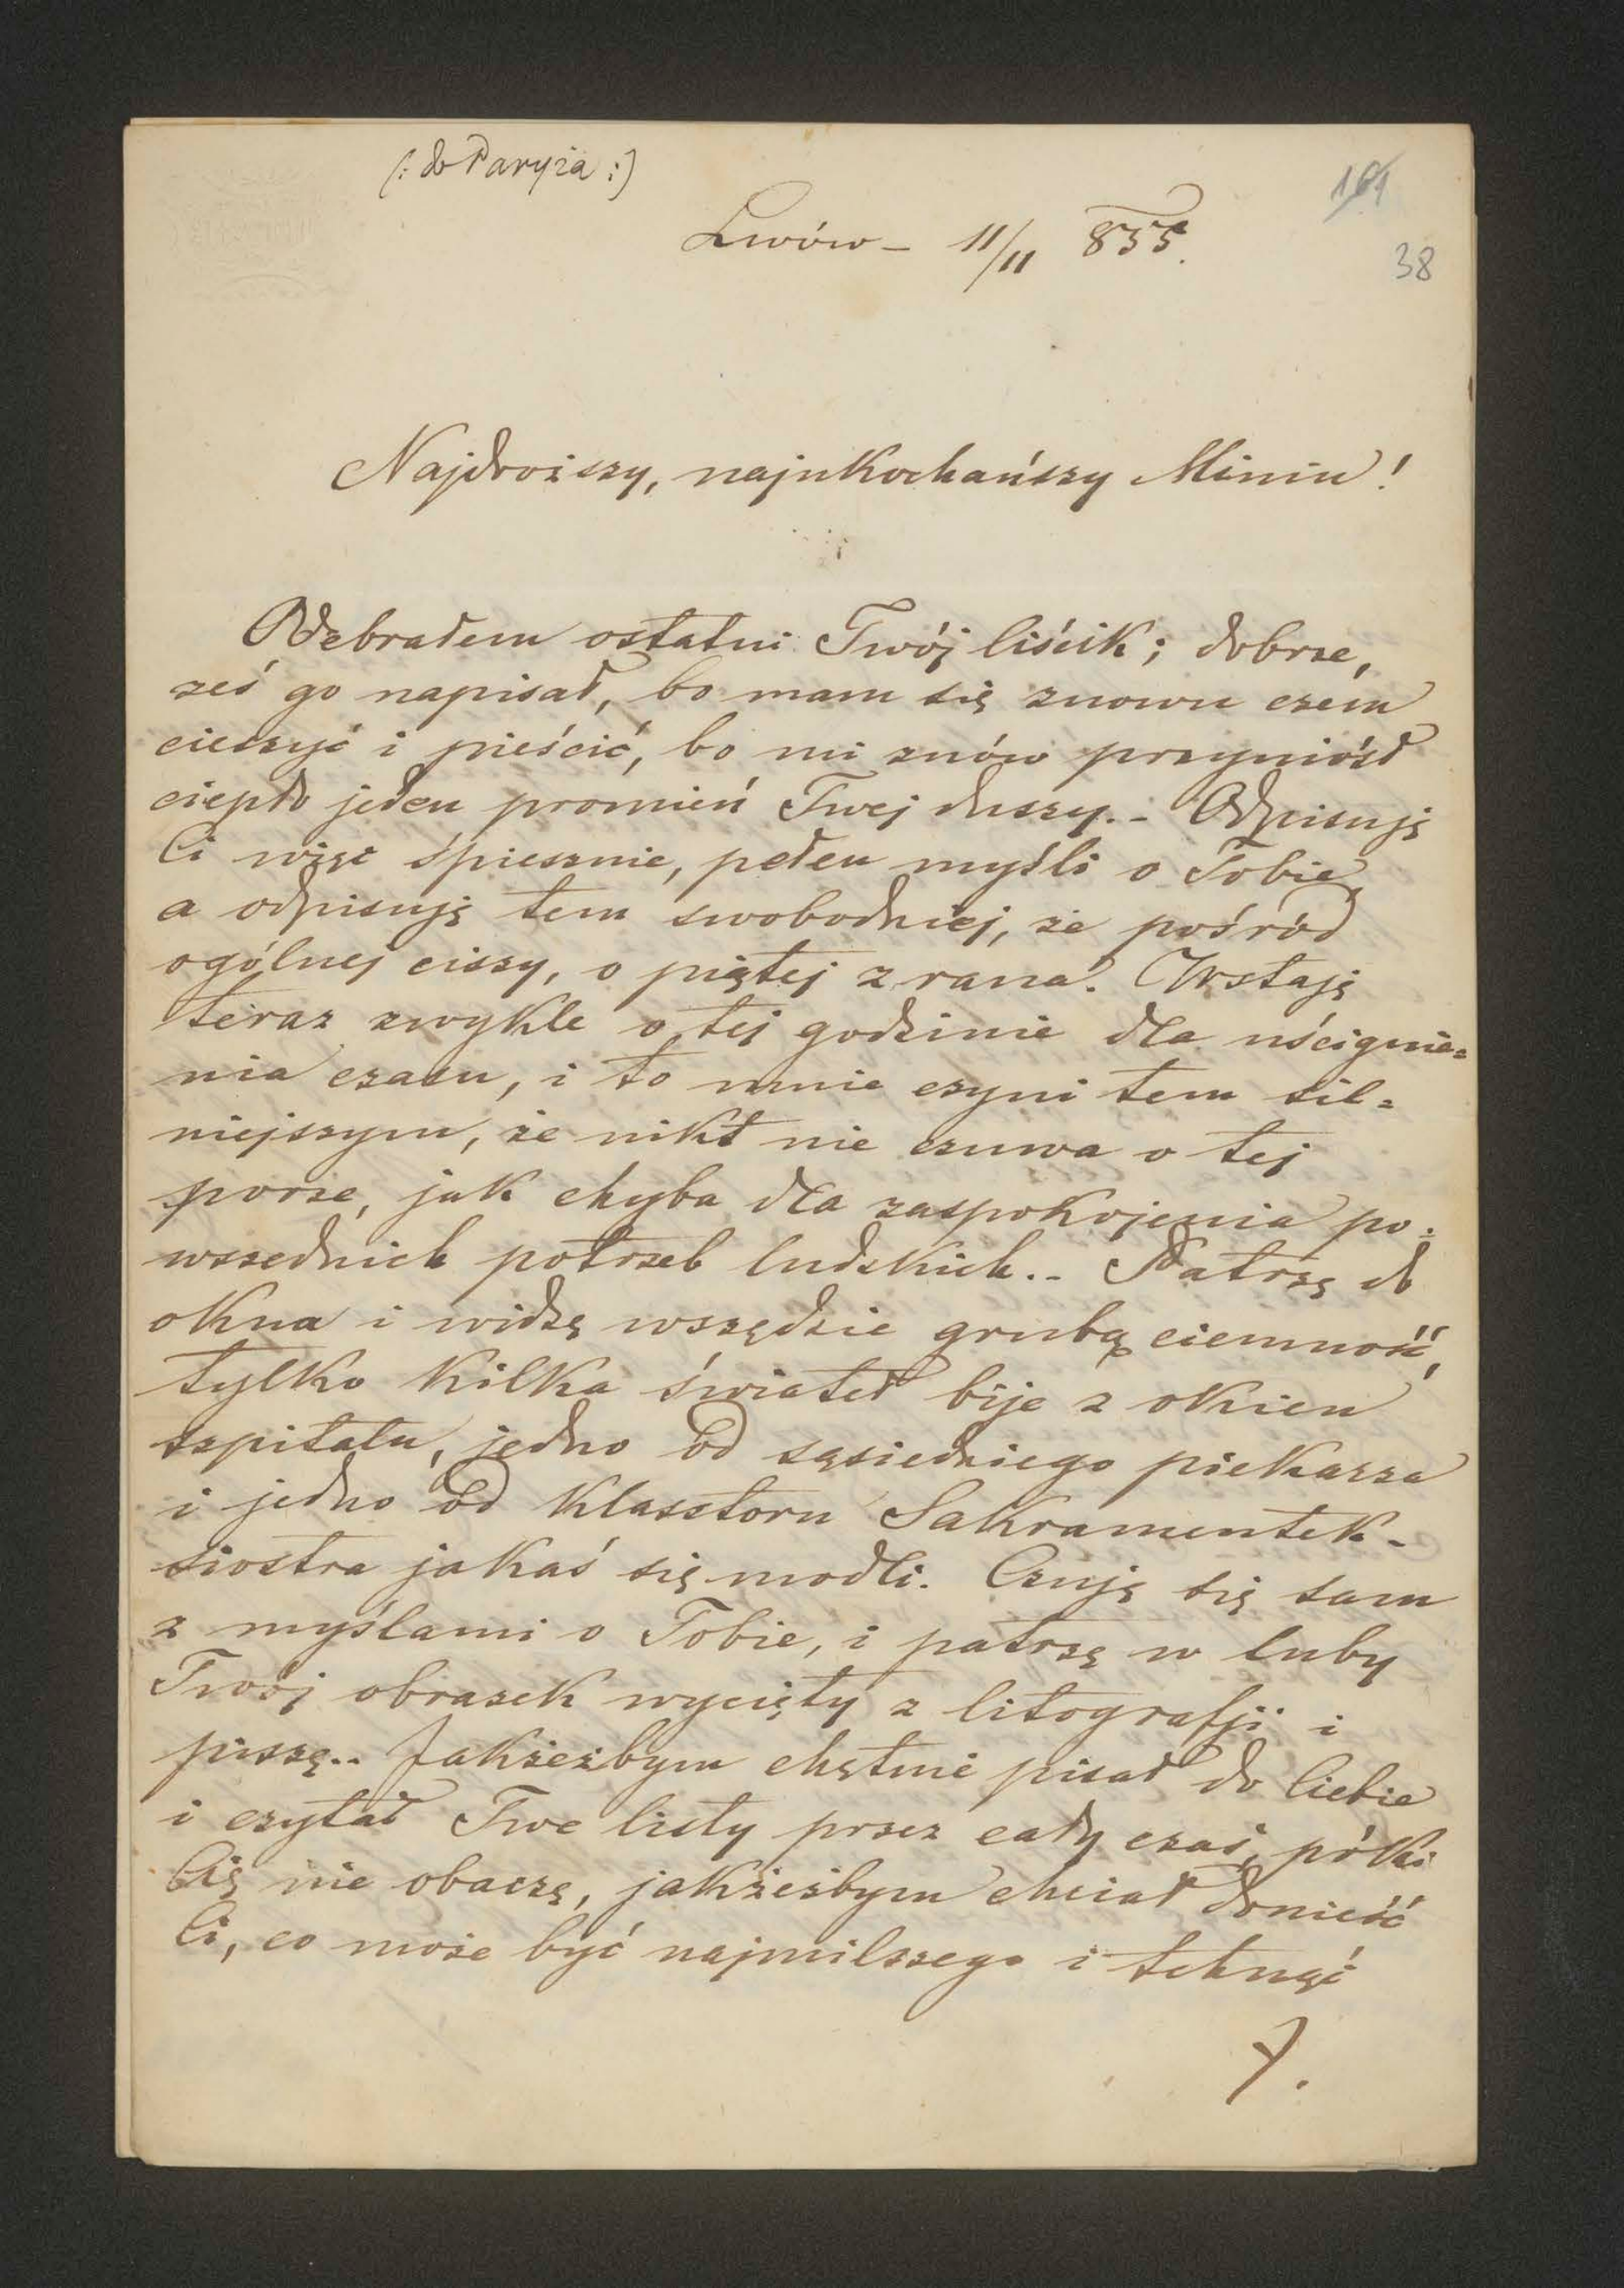 (: do Paryża :)
161
Lwów – 11/11 855.
38
Najdroższy, najukochańszy Miniu!
Odebrałem ostatni Twój liścik; dobrze,
żeś go napisał, bo mam się znowu czém
cieszyć i pieścić, bo mi znów przyniósł
ciepło jeden promień Twej duszy. – Odpisuję
Ci więc śpiesznie, pełen myśli o Tobie,
a odpisuję tem swobodniej, że pośród
ogólnej ciszy, o piątej z rana. Wstaję
teraz zwykle o tej godzinie dla uścignie=
nia czasu, i to mnie czyni tem sil=
niejszym, że nikt nie czuwa o tej
porze, jak chyba dla zaspokojenia po=
wszednich potrzeb ludzkich. – Patrzę do
okna i widzę wszędzie grubą ciemność,
tylko kilka świateł bije z okien
szpitalu, jedno od sąsiedniego piekarza
i jedno od klasztoru Sakramentek –
siostra jakaś się modli. Czuję się sam
z myślami o Tobie, i patrzę w luby
Twój obrazek wycięty z litografji i
piszę.. Jakżeżbym chętnie pisał do Ciebie
i czytał Twe listy przez cały czas, póki
Cię nie obaczę, jakżeżbym chciał donieść
Ci, co może być najmilszego i tchnąć